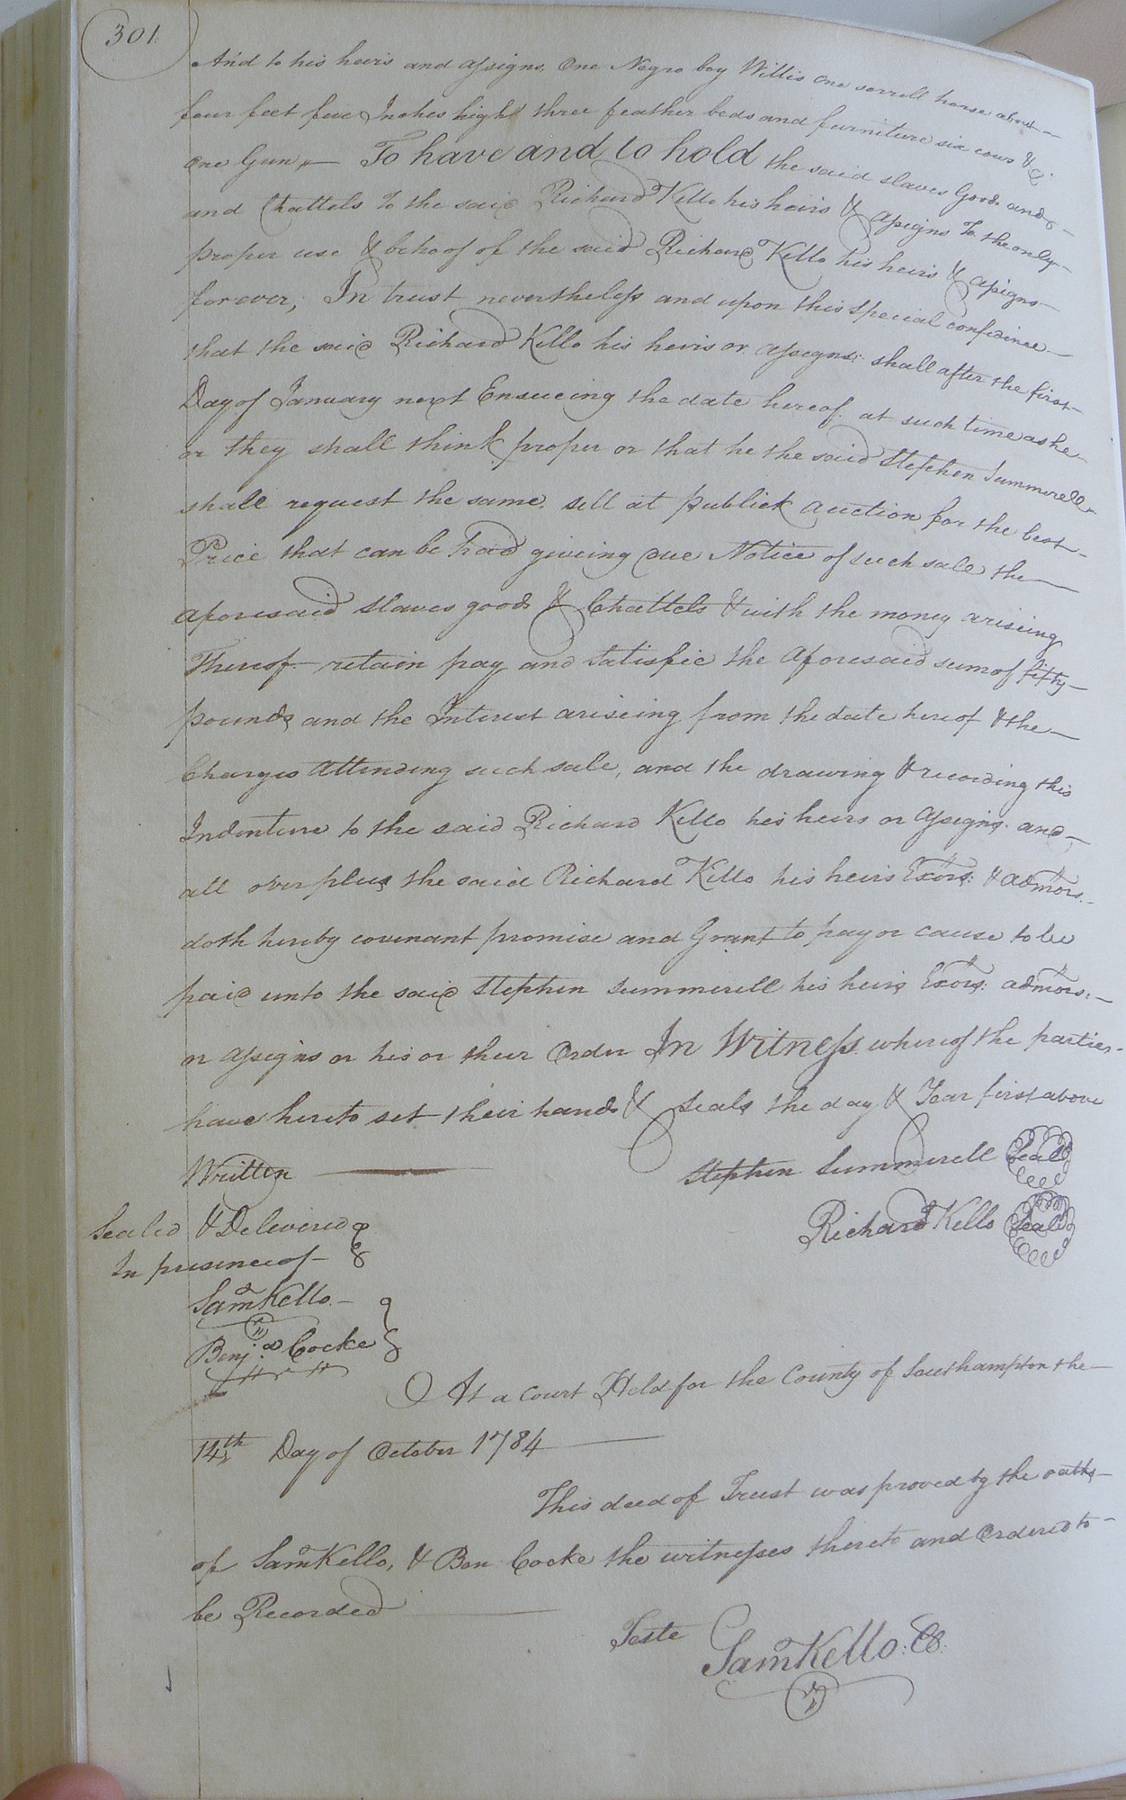 301
And to his heirs and assigns, One Negro boy Willis one sorrell horse about
four feet five Inches high three feather beds and furniture six cows &
One Gun, To have and to hold the said slaves Goods and
and Chattels To the said Richard Kello his heirs & assigns To the only
proper use & behoof of the said Richard Kello his heirs & assigns
forever; In trust nevertheless and upon this special confidence
that the said Richard Kello his heirs or assigns: shall after the first
Day of January next Ensueing the date hereof. at such time as he
or they shall think proper or that he the said Stephen Summerell
shall request the same. sell at publick auction for the best
Price that can be had giveing due Notice of such sale the
aforesaid slaves goods & Chattels & with the money ariseing
Thereof retain pay and Satisfie the Aforesaid sum of fifty
pounds and the Interest ariseing from the date hereof & the
Charges Attending such sale, and the drawing & recording this
Indenture to the said Richard Kello his heirs or Assigns. and
all overplus the said Richard Kello his heirs Exors: & admors.
doth hereby covenant promise and Grant to pay or cause to be
paid unto the said Stephen Summerell his heirs Exors: admors:
or Assigns or his or their Order In Witness. whereof the parties
have hereto set their hands & Seals the day & Year first above
Written
Stephen Summerell Seal
Richard Kello Seal
Sealed & Delivered
In presence of
Saml Kello
Benja Cocke
At a Court Held for the County of Southampton the
14th Day of October 1784
This deed of Trust was proved by the oaths
of Saml Kello, & Ben Cocke the witnesses thereto and Ordered to
be Recorded
Teste
Saml Kello: CC.